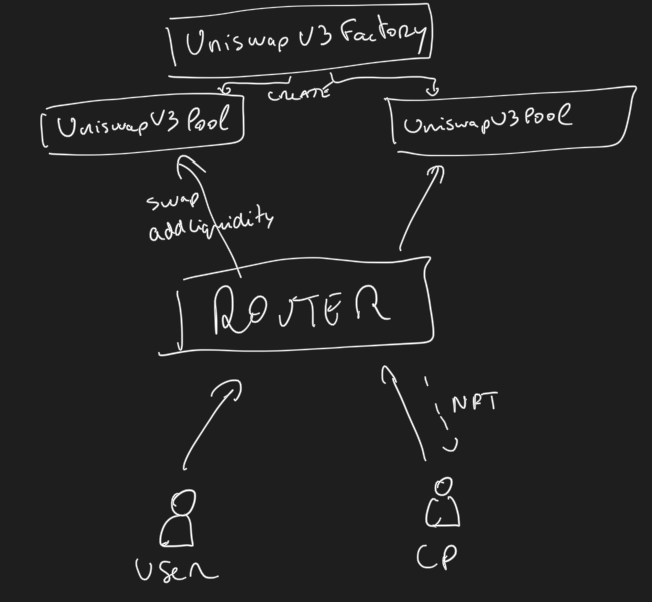 Uniswap V3 Factory
CREATE
UniswapV3Pool
UniswapV3Pool
swap
addliquidity
ROUTER
NFT
USer
CP